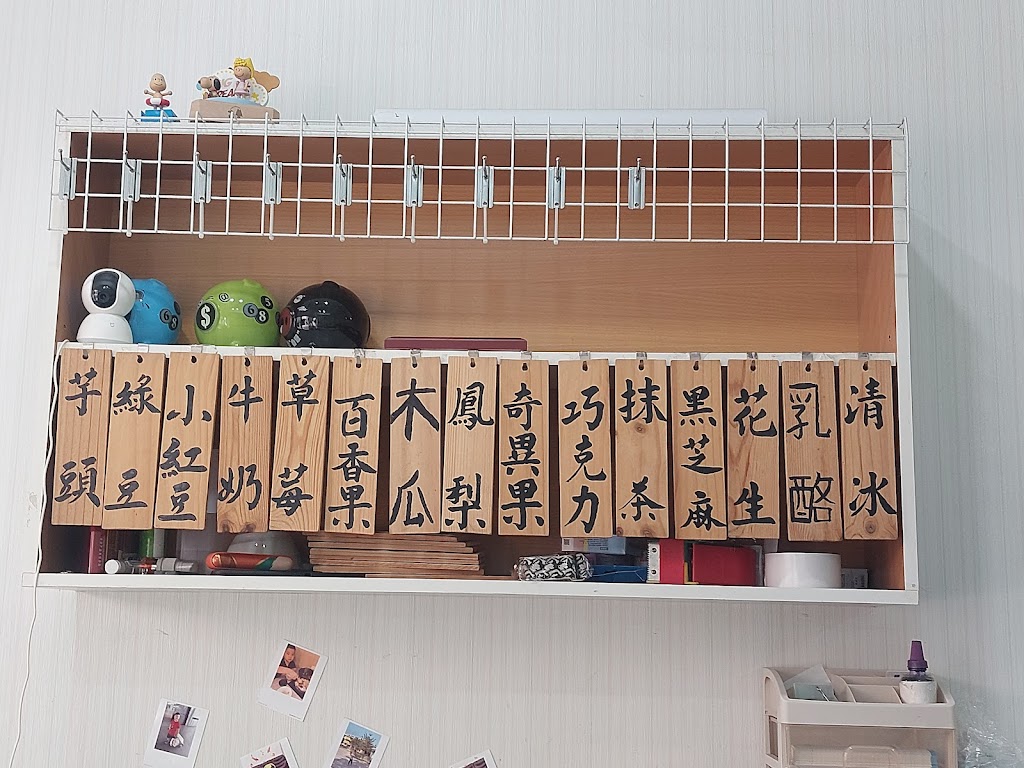 芋頭
綠豆
小紅豆
牛奶
草莓
百香果
木瓜
鳳梨
奇異果
巧克力
抹茶
黑芝麻
花生
乳酪
清冰